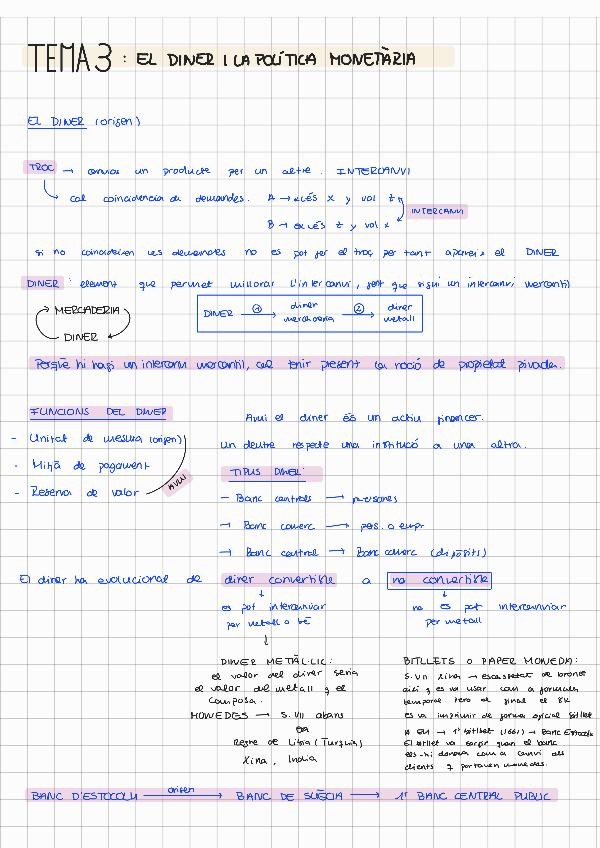 TEMA 3 : EL DINER I LA POLÍTICA MONETÀRIA
EL DINER (origen)
TROC → canvias un producte per un altre. INTERCANVI
cal coincidència de demandes. A → excés x y vol z
B → excés z y vol x
INTERCANVI
si no coincideixen les demandes no es pot fer el troc per tant apareix el DINER
DINER: element que permet millorar l'intercanvi, fent que sigui un intercanvi mercantil
MERCADERIA
DINER
DINER ① → diner mercaderia ② → diner metall
Perquè hi hagi un intercanvi mercantil, cal tenir present la noció de propietat privada.
FUNCIONS DEL DINER
- Unitat de mesura (origen)
- Mitjà de pagament
- Reserva de valor
AVUI
Avui el diner és un actiu financer.
un deutre respecte una institució a una altra.
TIPUS DINER:
- Banc centrals → persones
→ Banc comerc → pers. o empr
→ Banc central → Banc comerc (dipòsits)
El diner ha evolucionat de diner convertible a no convertible
es pot intercanviar
per metall o bé
no es pot intercanviar
per metall
DINER METÀL·LIC:
el valor del diner seria
el valor del metall q el
composa.
MONEDES → S. VII abans
Regne de Lídia (Turquia)
Xina, India
BITLLETS O PAPER MONEDA:
S. VII Xina → escassetat de bronze
així q es va usar com a formula
temporal però al final el
es va imprimir de forma oficial bitllet
A EU → 1r bitllet (1661) → Banc Estocolm
El bitllet va sorgir quan el banc
els hi donava com a canvi als
clients q portaven monedes.
BANC D'ESTOCOLM origen → BANC DE SUÈCIA → 1r BANC CENTRAL PUBLIC